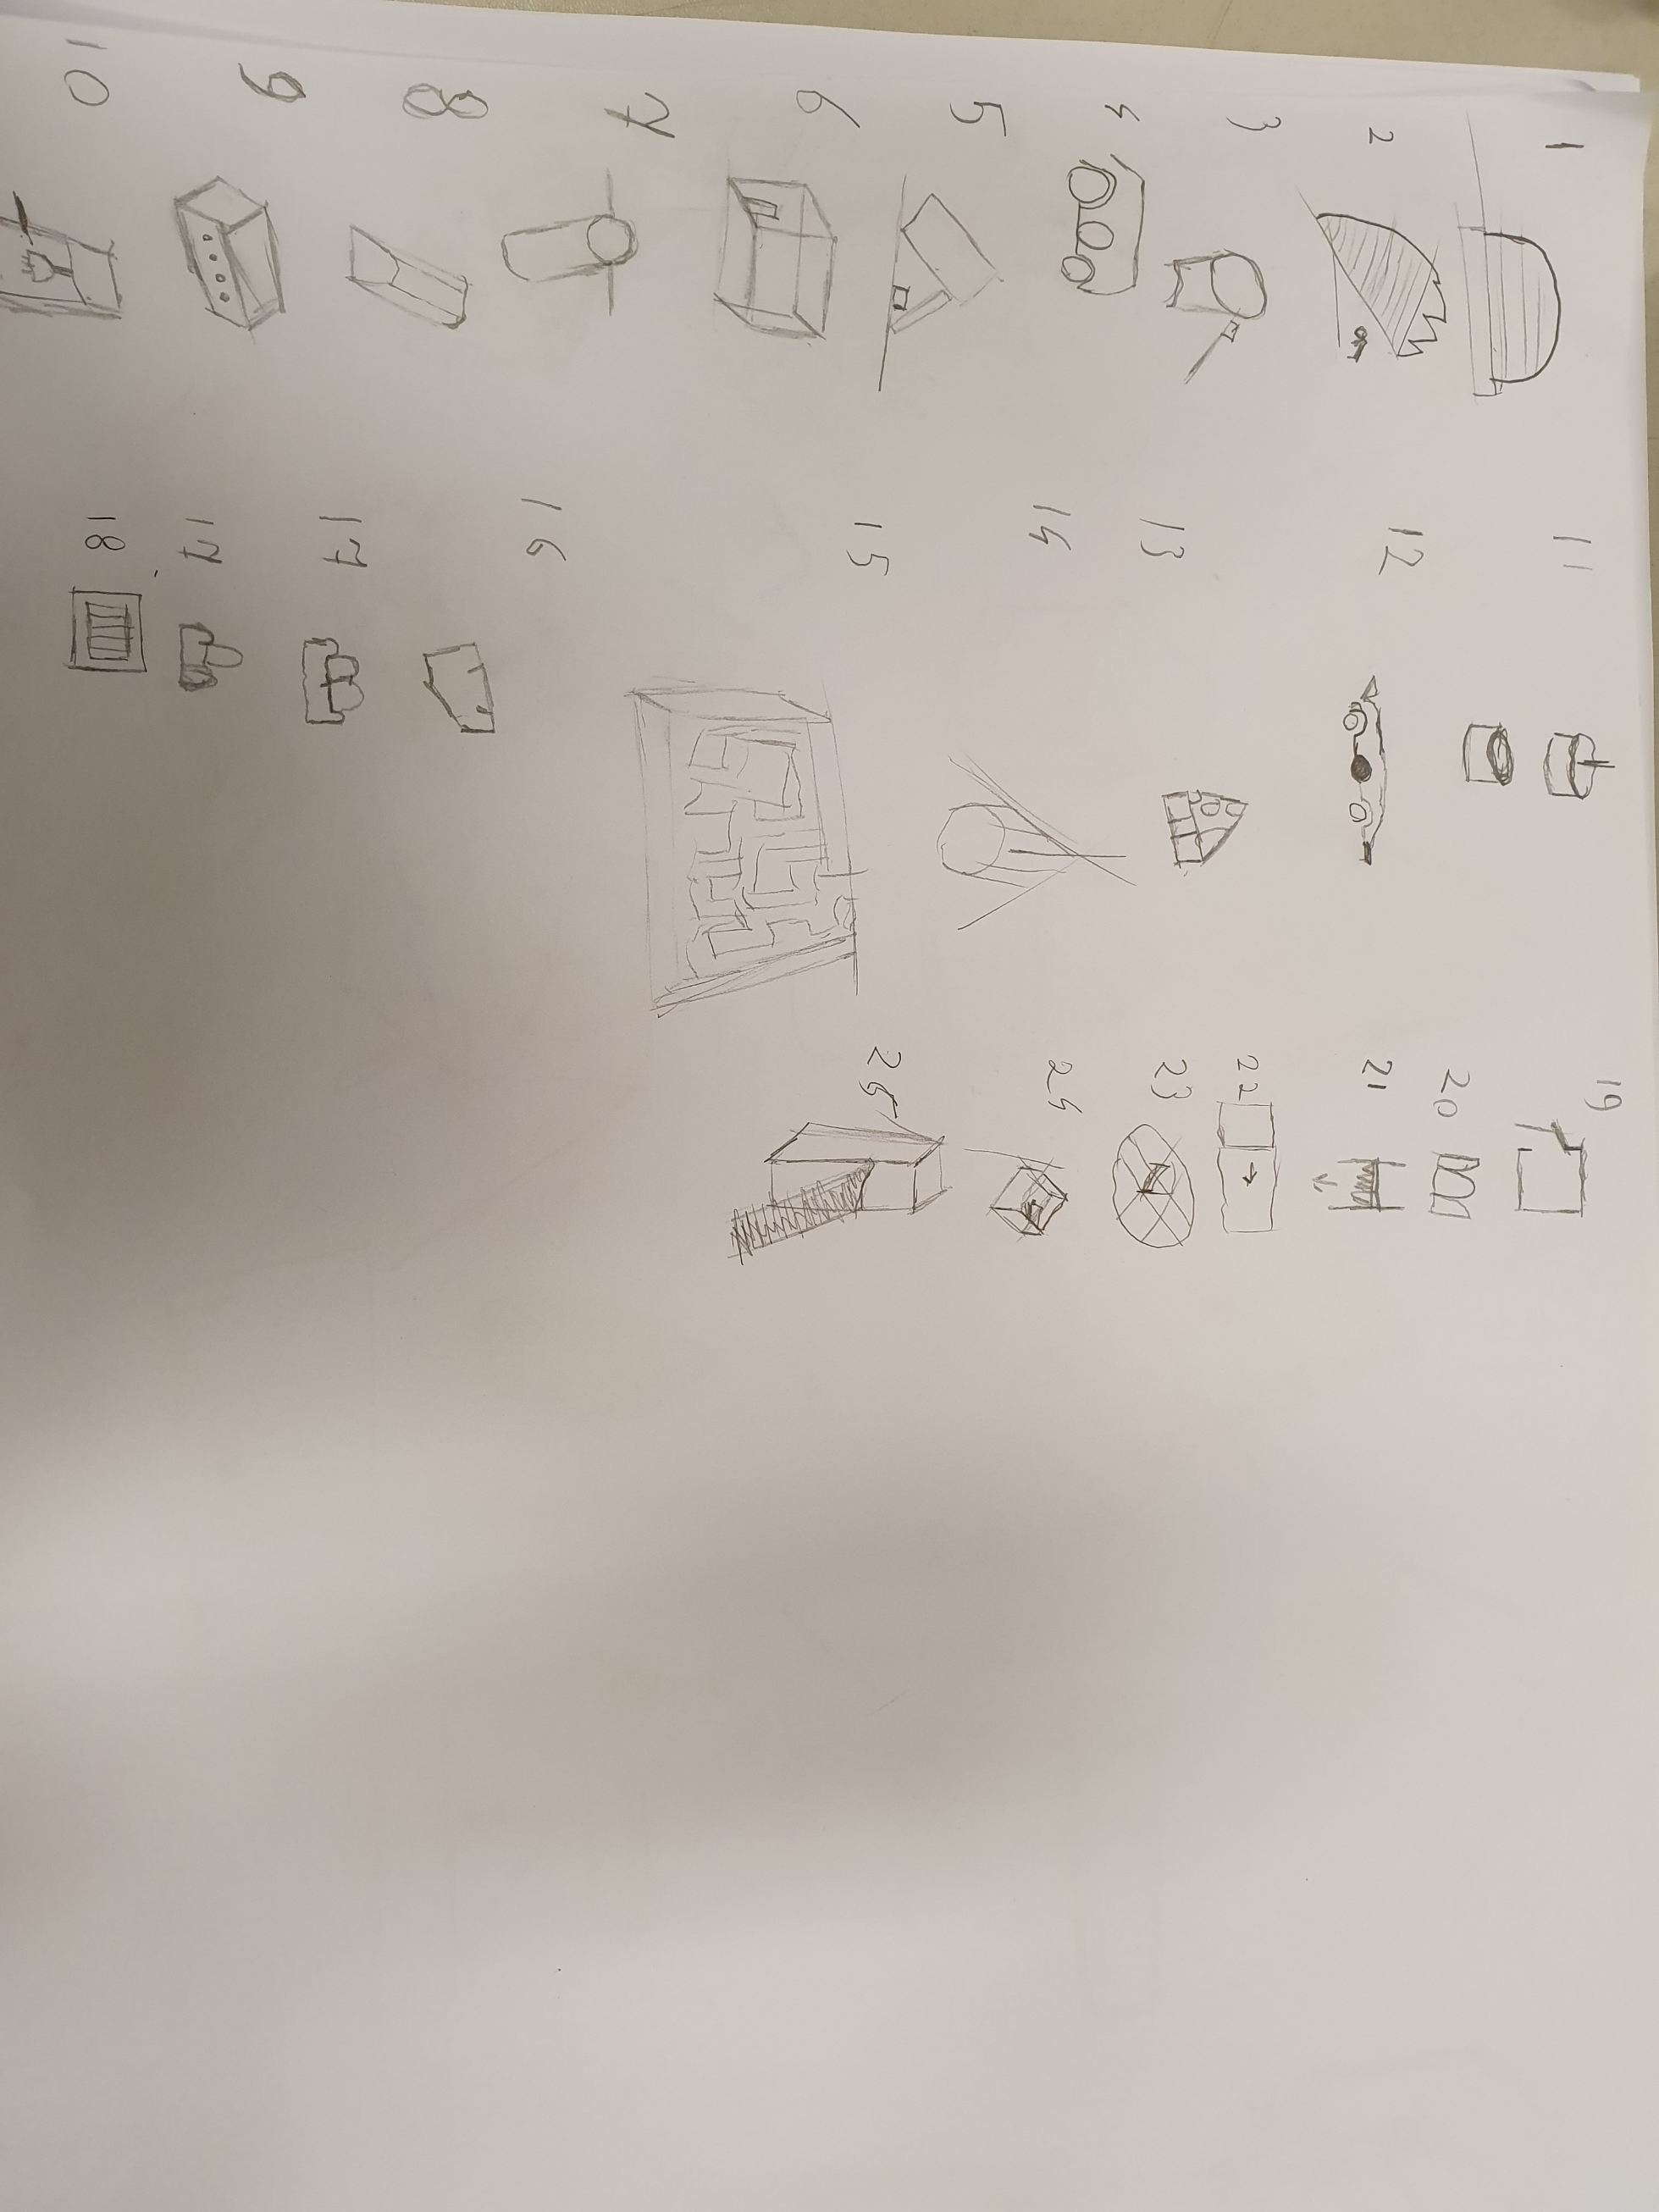 1
2
3
4
5
6
7
8
9
10
11
12
13
14
15
16
17
17
18
19
20
21
22
23
24
25